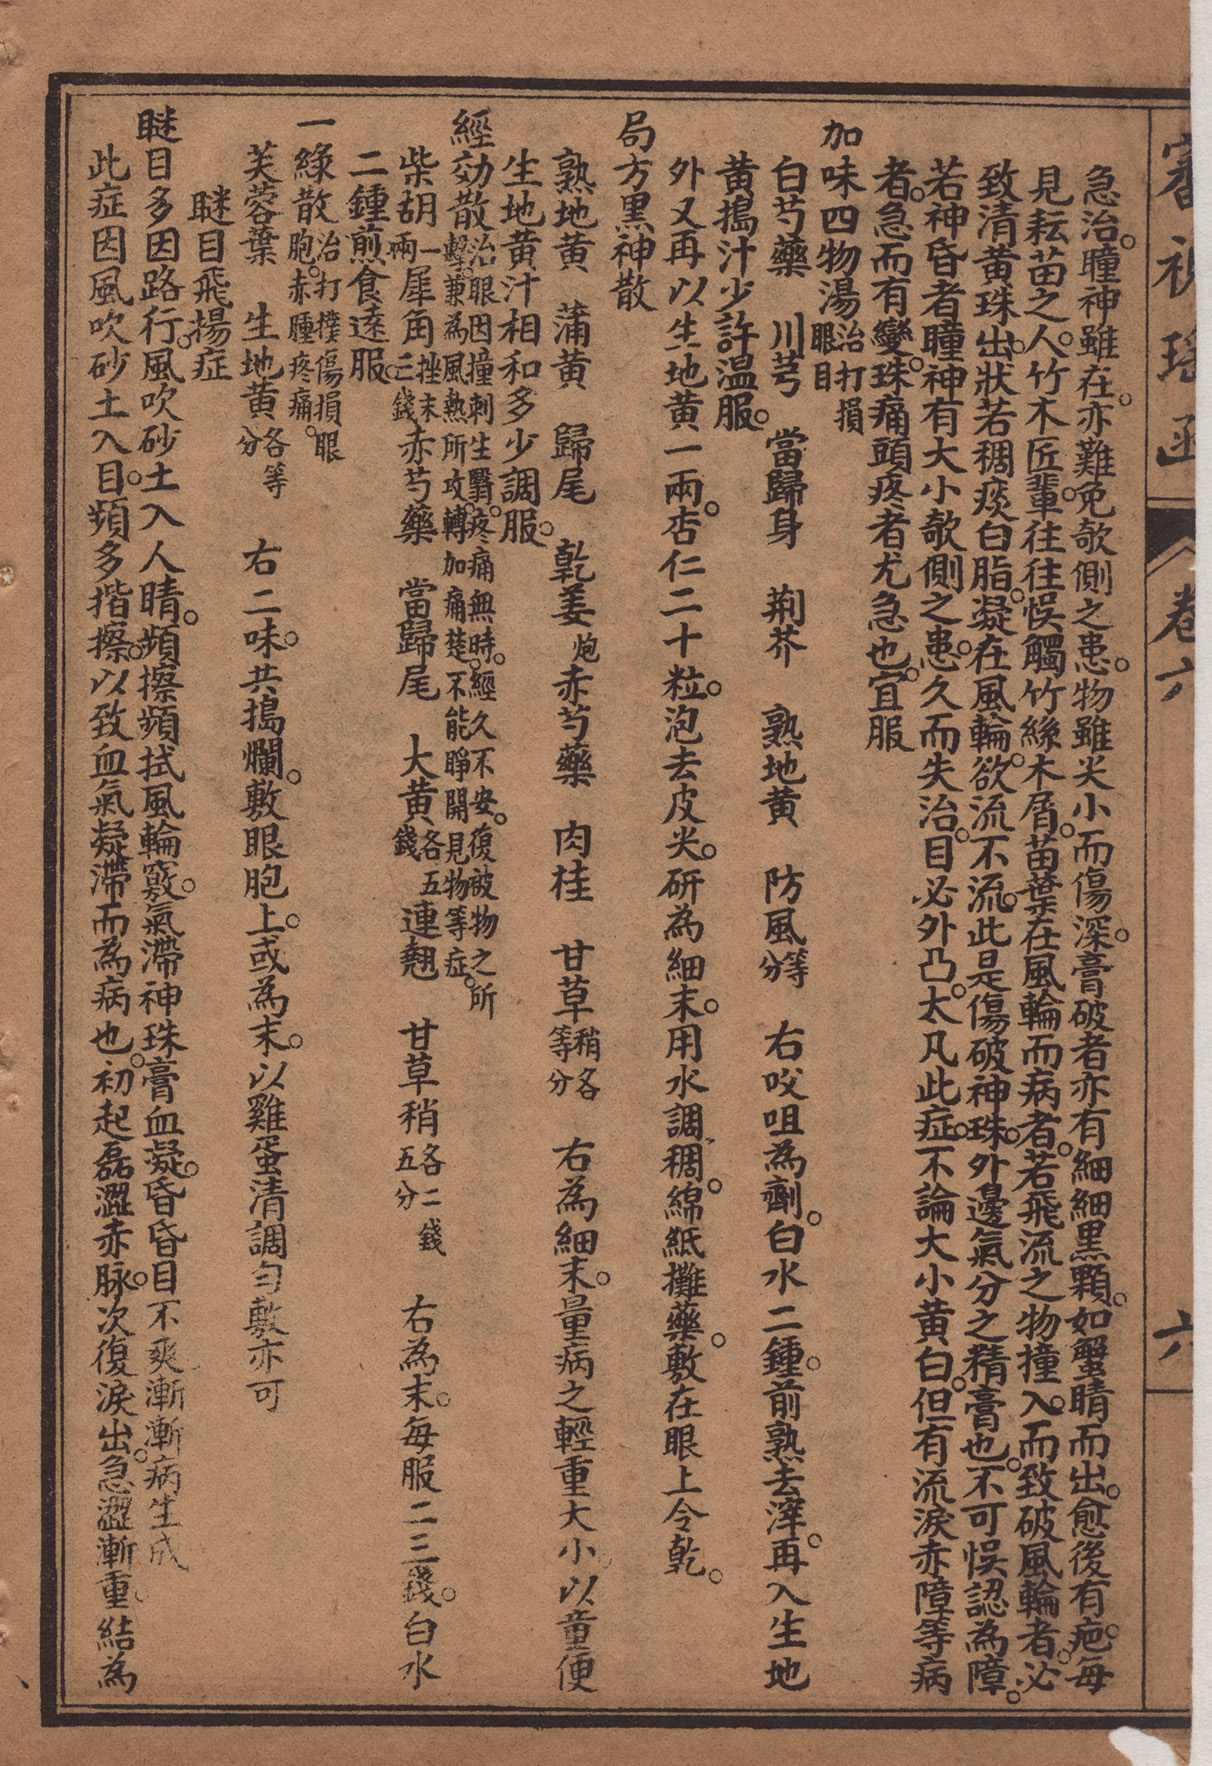 審視瑤函 卷六 六
急治。瞳神雖在。亦難免欹側之患。物雖尖小。而傷深。膏破者。亦有細細黑顆。如蟹睛而出。愈後有疤。每
見耘苗之人。竹木匠輩。往往悞觸竹絲木屑。苗葉在風輪而病者。若飛流之物撞入。而致破風輪者。必
致清黃珠出。狀若稠痰白脂。凝在風輪。欲流不流。此是傷破神珠。外邊氣分之精膏也。不可悞認為障。
若神昏者。瞳神有大小欹側之患。久而失治。目必外凸。大凡此症。不論大小黃白。但有流淚赤障等病
者。急而有變。珠痛頭疼者尤急也。宜服
加味四物湯治打損眼目
白芍藥 川芎 當歸身 荊芥 熟地黃 防風等分 右咬咀為劑。白水二鍾。前熟去滓。再入生地
黃搗汁少許温服。
外又再以生地黃一兩。杏仁二十粒。泡去皮尖。研為細末。用水調稠。綿紙攤藥。敷在眼上令乾。
局方黑神散
熟地黃 蒲黃 歸尾 乾姜炮 赤芍藥 肉桂 甘草稍各等分 右為細末。量病之輕重大小。以童便
生地黃汁相和多少調服。
經効散治眼因撞刺生翳。疼痛無時。經久不安。復被物之所擊。兼為風熱所攻。轉加痛楚。不能睜開見物等症。
柴胡一兩 犀角挫末三錢 赤芍藥 當歸尾 大黃各五錢 連翹 甘草稍各二錢五分 右為末。每服二三錢。白水
二鍾煎。食遠服。
一綠散治打撲傷損眼胞。赤腫疼痛。
芙蓉葉 生地黃各等分 右二味。共搗爛。敷眼胞上。或為末。以雞蛋清調勻敷亦可
瞇目飛揚症
瞇目多因路行。風吹砂土入人睛。頻擦頻拭風輪竅。氣滯神珠膏血凝。昏昏目不爽漸漸病生成
此症因風吹砂土入目。頻多揩擦。以致血氣凝滯而為病也。初起磊澀赤脉。次復淚出。急澀漸重。結為